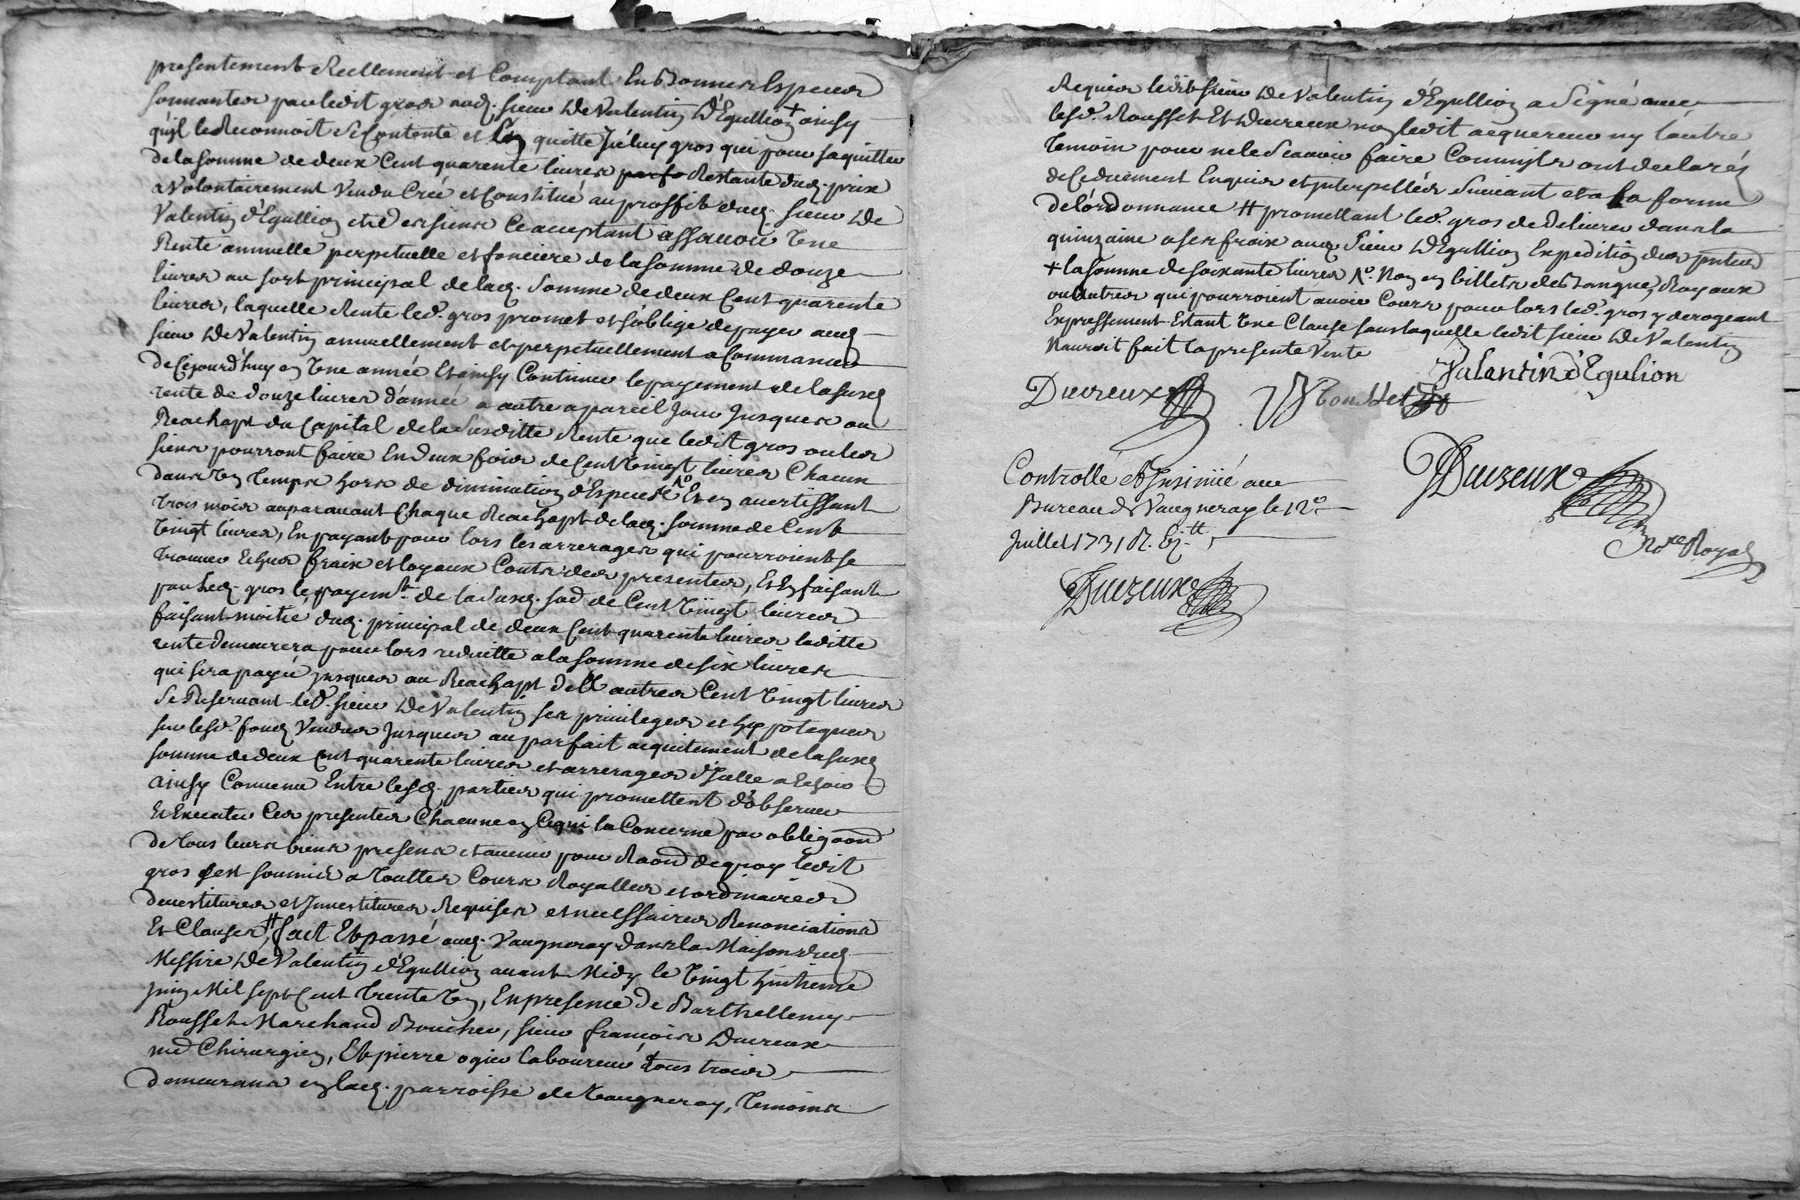 presentement Reellement et Comptant En Bonnes Especes
sonnantes par ledit gros aud. sieur De Valentin D'Egullion + ainsy
qu'il le Reconnoit se Contente et len quitte Icéluy gros qui pour saquitter
de la somme de deux Cent quarente livres Restante dud. prix
a volontairement Vendu Creé et Constitué au proffit dud. sieur De
Valentin d'Egullion et des siens Ce acceptant assavoir Une
Rente annuelle perpetuelle et fonciere de la somme de douze
livres au sort principal de lad. somme de deux Cent quarente
livres, laquelle Rente led. gros promet et soblige de payer aud.
sieur De Valentin annuellement et perpetuellement a Commancer
de Cejourd'huy en Une année Et ainsy Continuer le payement de la susd.
rente de douze livres d'année a autre a pareil Jour Jusques au
Reachapt du Capital de la Susditte Rente que ledit gros ou les
siens pourront faire En deux fois de Cent Vingt livres Chacun
dans Un Temps hors de diminution d'Especes No Et en avertissant
trois mois auparavant Chaque Reachapt de lad. somme de Cent
Vingt livres, En payant pour lors les arrerages qui pourront se
trouver Echus fraix et loyaux Couts des presentes, Et En faisant
par led. gros le payemt. de la Susd. sod de Cent Vingt livres
faisant moitié dud. principal de deux Cent quarente livres laditte
rente demeurera pour lors reduitte a la somme de six livres
qui sera payée jusques au Reachapt des autres Cent Vingt livres
Se Reservant led. sieur De Valentin ses privileges et hypoteques
sur lesd. fonds Vendus Jusques au parfait acquitement de la susd.
somme de deux Cent quarente livres et arrerages d'Icelle a Echoir
ainsy Convenu Entre lesd. parties qui promettent d'observer
Et Executer Ces presentes Chacune en Ce qui la Concerne par obligaon
de tous leurs biens presens et avenir pour Raon de quoy ledit
gros sest soumis a touttes Cours Royalles et ordinaires
devestitures et Investitures Requises et necessaires Renonciations
Et Clauses, # fait Et passé aud. Vaugneray dans la Maison dud.
Messire De Valentin d'Egullion avant Midy le Vingt huitieme
juin Mil sept Cent Trente Un, En presence de Barthellemy
Rousset Marchand Boucher, sieur françois Ducreux
md Chirurgien, Et pierre ogier laboureur tous trois
demeurans en lad. parroisse de Vaugneray, temoins
Requis ledit sieur De Valentin d'Egullion a Signé avec
lesd. Rousset Et Ducreux non ledit acquereur ny l'autre
temoin pour ne le Scavoir faire Comme ils ont declarés
de Ce duement Enquis et Interpellés Suivant et a la forme
de l'ordonnance # promettant led. gros de delivrer dans la
quinzaine a ses fraix aud. Sieur D'Egullion Expedition des pntes
+ la somme de soixante livres No Non en billets de Banque, Royaux
ou autres qui pourroient avoir Cours pour lors led. gros y derogeant
Expressement Estant Une Clause sans laquelle ledit sieur De Valentin
Nauroit fait la presente Vente
Valantin d'Egulion
Ducreux
Rousset
Controllé & Insinüé au
Bureau de Vaugneray le 12e
Juillet 1731 R.
Ducreux
Ducreux
No.re Royal